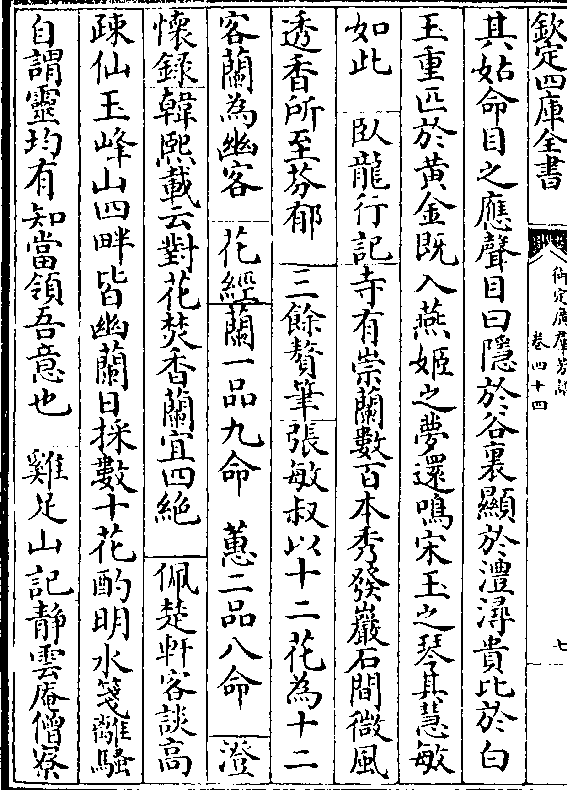 欽定四庫全書
御定廣羣芳譜
卷四十四
七
其姑命目之應聲目曰隱於谷裏顯於澧潯貴比於白
玉重匹於黄金既入燕姬之夢還鳴宋玉之琴其慧敏
如此　臥龍行記寺有崇蘭數百本秀發巖石間微風
透香所至芬郁　三餘贅筆張敏叔以十二花為十二
客蘭為幽客　花經蘭一品九命　蕙二品八命　澄
懷錄韓熙載云對花焚香蘭宜四絶　佩楚軒客談高
疎仙玉峰山四畔皆幽蘭日採數十花酌明水箋離騷
自謂靈均有知當領吾意也　雞足山記靜雲庵僧寮